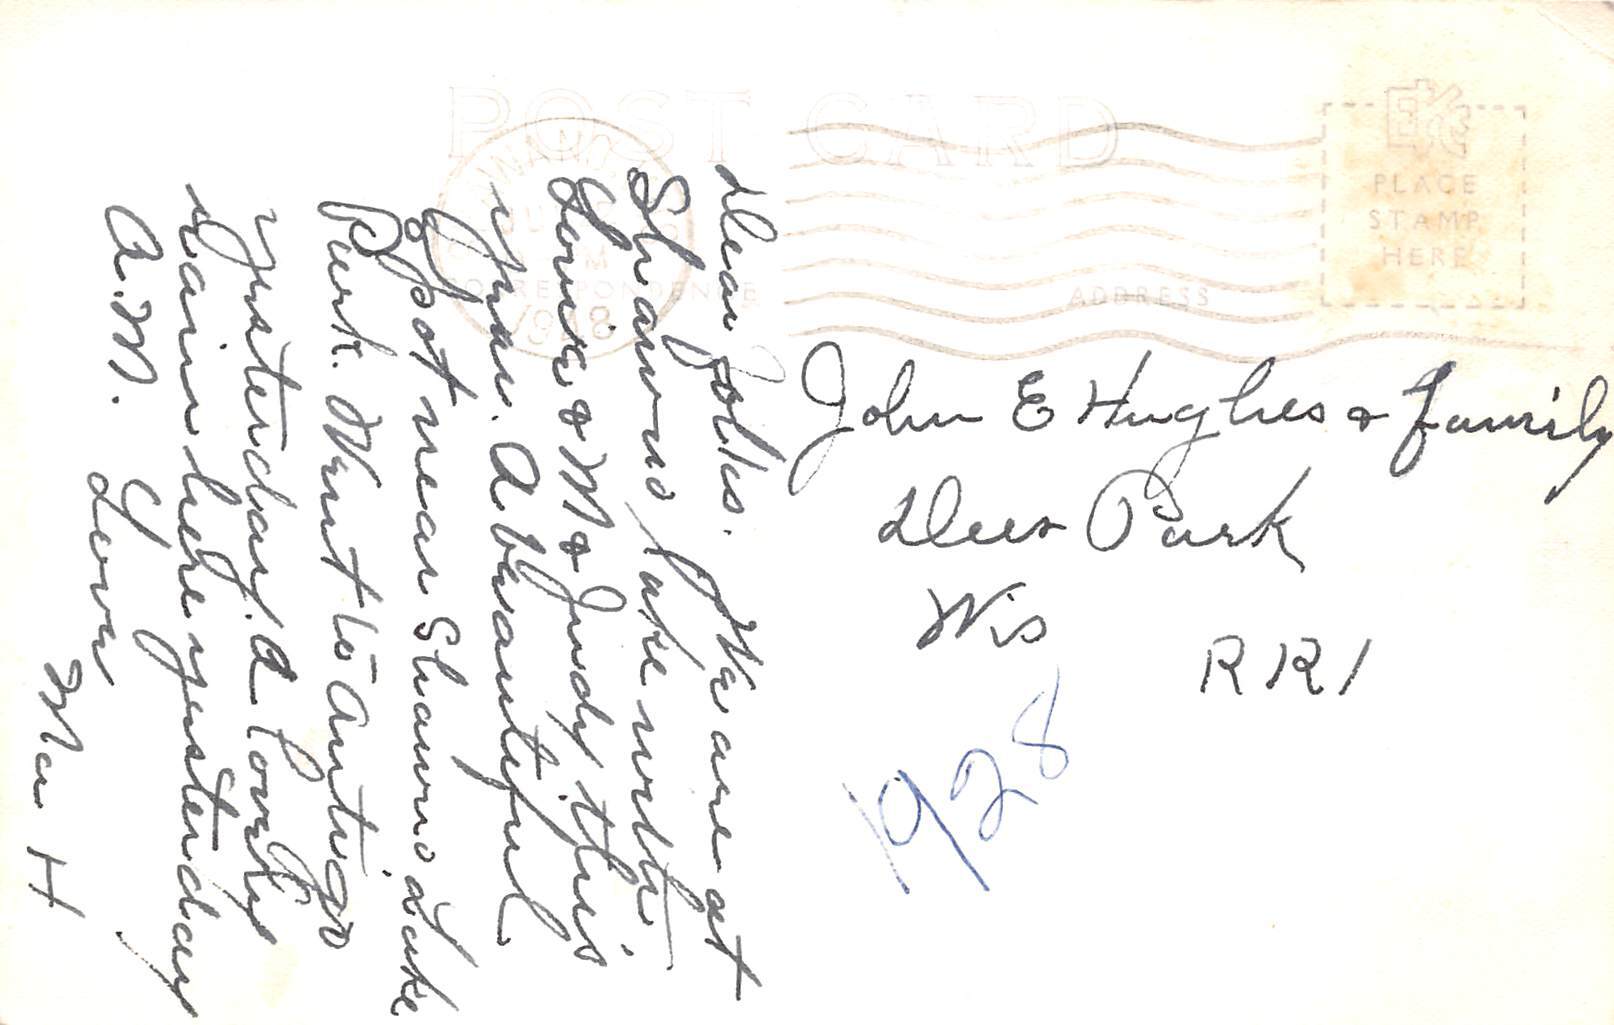 POST CARD
CORRESPONDENCE
ADDRESS
EKC
PLACE
STAMP
HERE
1948
Dear folks. We are at
Shawno Lake with
Louie & M & Judy this
A beautiful
spot near Shawno Lake
Park. Went to Antigo
yesterday. A lovely
rain here yesterday
A.M.
Love
Ma H
John E Hughes & Family
Deer Park
Wis
RR1
1928